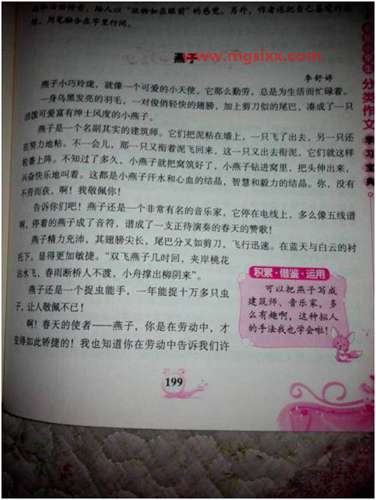 www.mgsixx.com
燕子
李舒婷
燕子小巧玲珑，就像一个可爱的小天使，它那么勤劳，总是为生活而忙碌着。
一身乌黑发亮的羽毛，一对俊俏轻快的翅膀，加上剪刀似的尾巴，凑成了一只
活泼可爱富有绅士风度的小燕子。
燕子是一个名副其实的建筑师。它们把泥粘在墙上，一只飞了出去，另一只还
在努力地粘，不一会儿，那一只又衔着泥飞回来，这一只又出去衔泥，它们就这样
轮番上阵。不知过了多久，小燕子就把窝筑好了，小燕子钻进窝里，把头伸出来，
兴奋快乐地叫着。这都是小燕子汗水和心血的结晶，智慧和毅力的结晶。你，没有
不劳而获，啊！我敬佩你！
告诉你们吧！燕子还是一个非常有名的音乐家，它停在电线上，多么像五线谱
啊，停着的燕子成了音符，谱成了一支正待演奏的春天的赞歌！
燕子精力充沛，其翅膀尖长，尾巴分叉如剪刀，飞行迅速。在蓝天与白云的衬
托下，显得更加敏捷。“双飞燕子几时回，夹岸桃花
沾水飞，春雨断桥人不渡，小舟撑出柳阴来”。
燕子还是一个捉虫能手，一年能捉十万多只虫
子，让人敬佩不已！
啊！春天的使者——燕子，你是在劳动中，才
变得如此娇捷的！我也知道你在劳动中告诉我们许
积累·借鉴·运用
可以把燕子写成
建筑师、音乐家，多
么有趣啊，这种拟人
的手法我也学会啦！
199
分类作文
学习宝典